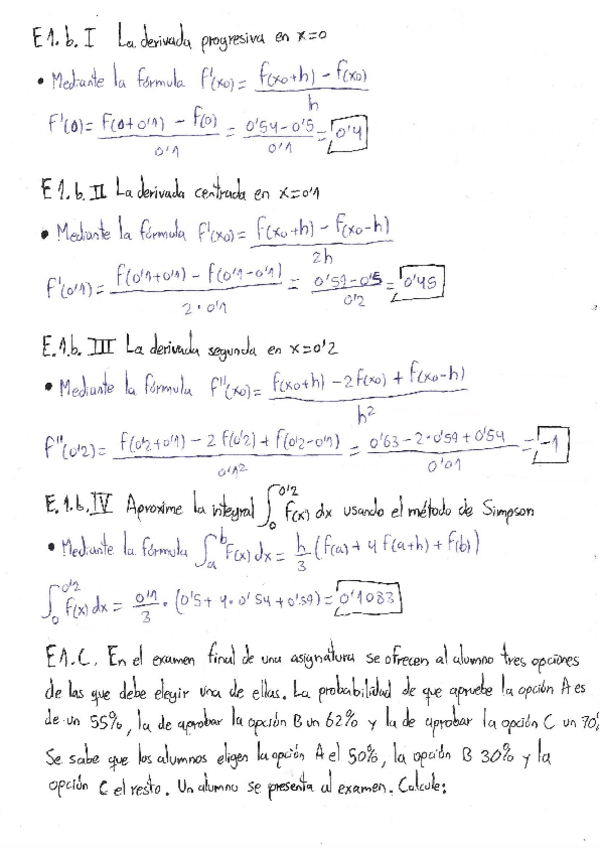 E1.b.I La derivada progresiva en x=0
• Mediante la fórmula f'(x0) = (f(x0+h) - f(x0)) / h
f'(0) = (f(0+0'1) - f(0)) / 0'1 = (0'54-0'5) / 0'1 = 0'4
E1.b.II La derivada centrada en x=0'1
• Mediante la fórmula f'(x0) = (f(x0+h) - f(x0-h)) / 2h
f'(0'1) = (f(0'1+0'1) - f(0'1-0'1)) / 2·0'1 = (0'59-0'5) / 0'2 = 0'45
E.1.b. III La derivada segunda en x=0'2
• Mediante la fórmula f''(x0) = (f(x0+h) - 2f(x0) + f(x0-h)) / h²
f''(0'2) = (f(0'2+0'1) - 2f(0'2) + f(0'2-0'1)) / 0'1² = (0'63-2·0'59+0'54) / 0'01 = -1
E.1.b.IV Aproxime la integral ∫₀^0'2 f(x) dx usando el método de Simpson
• Mediante la fórmula ∫ₐᵇ f(x) dx = h/3 (f(a) + 4f(a+h) + f(b))
∫₀^0'2 f(x) dx = 0'1/3 · (0'5 + 4·0'54 + 0'59) = 0'1083
E1.C. En el examen final de una asignatura se ofrecen al alumno tres opciones
de las que debe elegir una de ellas. La probabilidad de que apruebe la opción A es
de un 55%, la de aprobar la opción B un 62% y la de aprobar la opción C un 70%
Se sabe que los alumnos eligen la opción A el 50%, la opción B 30% y la
opción C el resto. Un alumno se presenta al examen. Calcule: